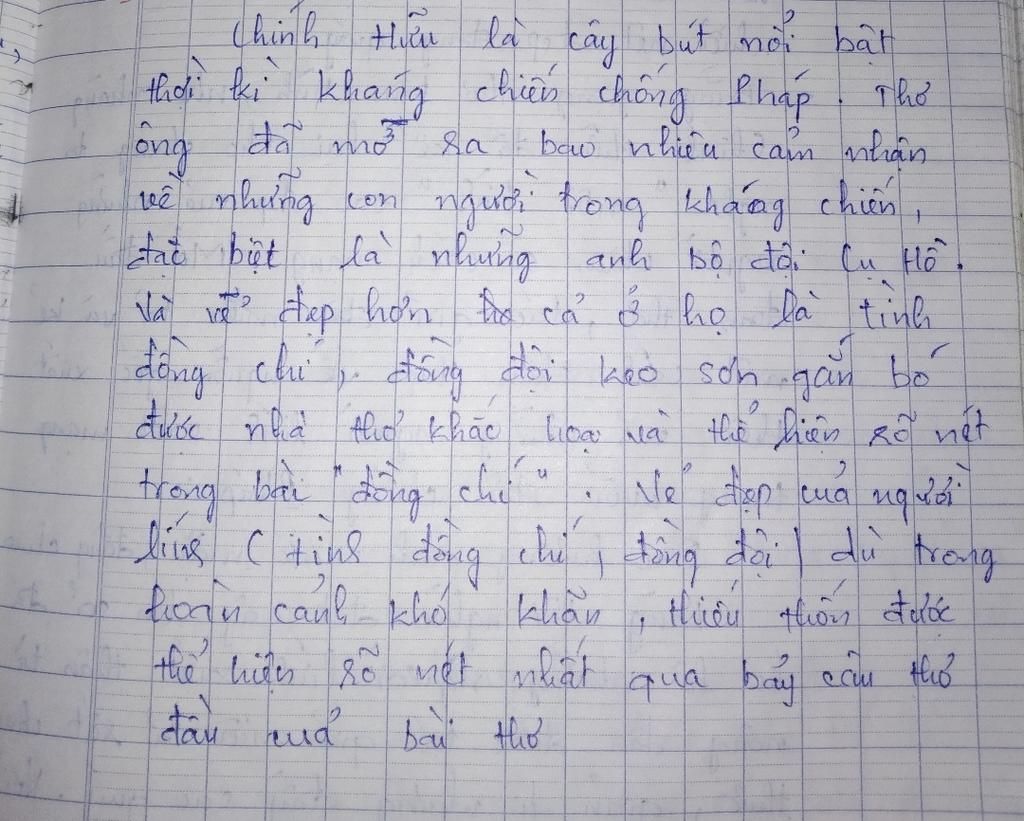 Chính Hữu là cây bút nổi bật
thời kì kháng chiến chống Pháp. Thơ
ông đã mở ra bao nhiêu cảm nhận
về những con người trong kháng chiến,
đặc biệt là những anh bộ đội Cụ Hồ.
Và vẻ đẹp hơn cả ở họ là tình
đồng chí, đồng đội keo sơn gắn bó
được nhà thơ khắc họa và thể hiện rõ nét
trong bài "đồng chí". Vẻ đẹp của người
lính (tình đồng chí, đồng đội) dù trong
hoàn cảnh khó khăn, thiếu thốn được
thể hiện rõ nét nhất qua bảy câu thơ
đầu của bài thơ